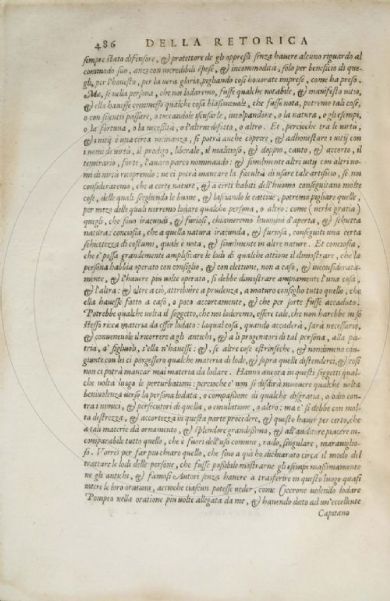 486 DELLA RETORICA
sempre stato difensore, & protettore de gli oppressi senza hauere alcuno riguardo al
commodo suo, anzi con incredibili spese, & incommodità, solo per beneficio di que-
gli, per l'honesto, per la uera gloria, pigliando cosi honorate imprese, come ha preso.
Ma, se nella persona, che noi lodaremo, fusse qualche notabile, & manifesto uitio,
& ella hauesse commesso qualche cosa biasimeuole, che fusse nota, potremo tal cosa,
o con silentio passare, o toccandole iscusarle, incolpandone, o la natura, o gli esempi,
o la fortuna, o la necessità, o l'altrui difetto, o altro. Et, percioche tra le uirtù,
& i uitij è una certa uicinanza, si potrà anche coprire, & adhonestare i uitij con
i nomi di uirtù, il prodigo, liberale, il malitioso, & doppio, cauto, & accorto, il
temerario, forte, l'auaro parco nominando: & similmente altri uitij con altri no-
mi di uirtù ricoprendo: ne ci potrà mancare la facultà di usare tale artificio, se noi
consideraremo, che a certe nature, & a certi habiti dell'huomo conseguitano molte
cose, delle quali scegliendo le buone, & lasciando le cattiue, potremo pigliare quelle,
per mezo delle quali uorremo lodare qualche persona, o altro: come (uerbi gratia)
quegli, che sono iracundi, & furiosi, chiameremo huomini d'aperta, & schietta
natura: conciosia, che a quella natura iracunda, & furiosa, conseguiti una certa
schiettezza di costumi, quale è nota, & similmente in altre nature. Et conciosia,
che è possa grandemente amplificare le lodi di qualche attione il dimostrare, che la
persona habbia operato con consiglio, & con elettione, non a caso, & inconsiderata-
mente, & l'hauere piu uolte operato, si debbe dimostrare ampiamente l'una cosa, &
l'altra: & oltre a ciò, attribuire a prudenza, a maturo consiglio tutto quello, che
ella hauesse fatto a caso, o poco accortamente, & che per sorte fusse accaduto.
Potrebbe qualche uolta il soggetto, che noi lodaremo, essere tale, che non harebbe in se
stesso ricca materia da esser lodato: laqual cosa, quando accaderà, sarà necessario,
& conueneuole il ricorrere a gli antichi, & a i progenitori di tal persona, alla pa-
tria, a' figliuoli, s'ella n'hauesse: &, se altre cose estrinseche, & nondimeno con-
giunte con lei ci porgessero qualche materia di lodi, & sopra quelle distenderci, & cosi
non ci potrà mancar mai materia da lodare. Hanno ancora in questi soggetti qual-
che uolta luogo le perturbationi: percioche e' non si disdirà muouere qualche uolta
beniuolenza uerso la persona lodata, o compassione di qualche disgratia, o odio con-
tra i nimici, & persecutori di quella, o emulatione, o altro: ma e' si debbe con mol-
ta destrezza, & accortezza in questa parte procedere, & questo hauer per certo, che
a tali materie dà ornamento, & splendore grandissimo, & all'auditore piacere in-
comparabile tutto quello, che è fuori dell'uso commune, rado, singulare, marauiglio-
so. Vorrei per far piu chiaro quello, che sino a quì ho dichiarato circa il modo del
trattare le lodi delle persone, che fusse possibile mostrarne gli esempi massimamente
ne gli antichi, & famosi Autori senza hauere a trasferire in questo luogo quasi
intere le loro orationi, accioche ciascun potesse ueder, come Cicerone uolendo lodare
Pompeo nella oratione piu uolte allegata da me, & hauendo detto ad un'eccellente
Capitano